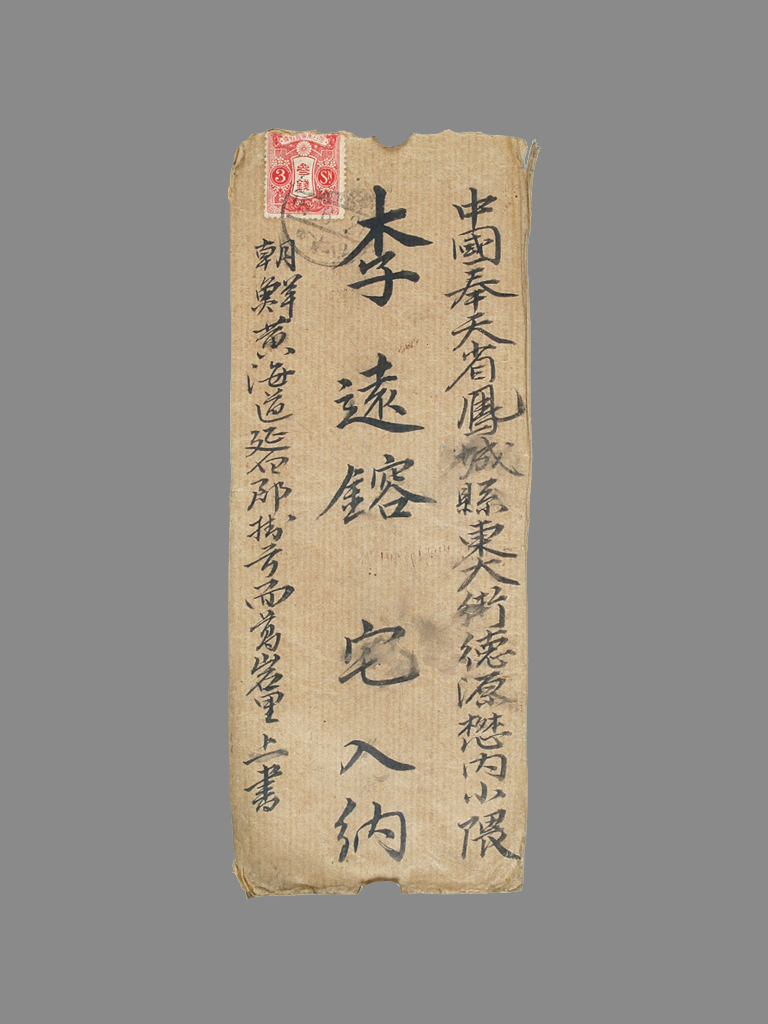 中國奉天省鳳城縣東大街德源懋內小隈
李遠鎔宅入納
朝鮮黃海道延白郡掛弓面葛岩里上書
3 參錢 Sn